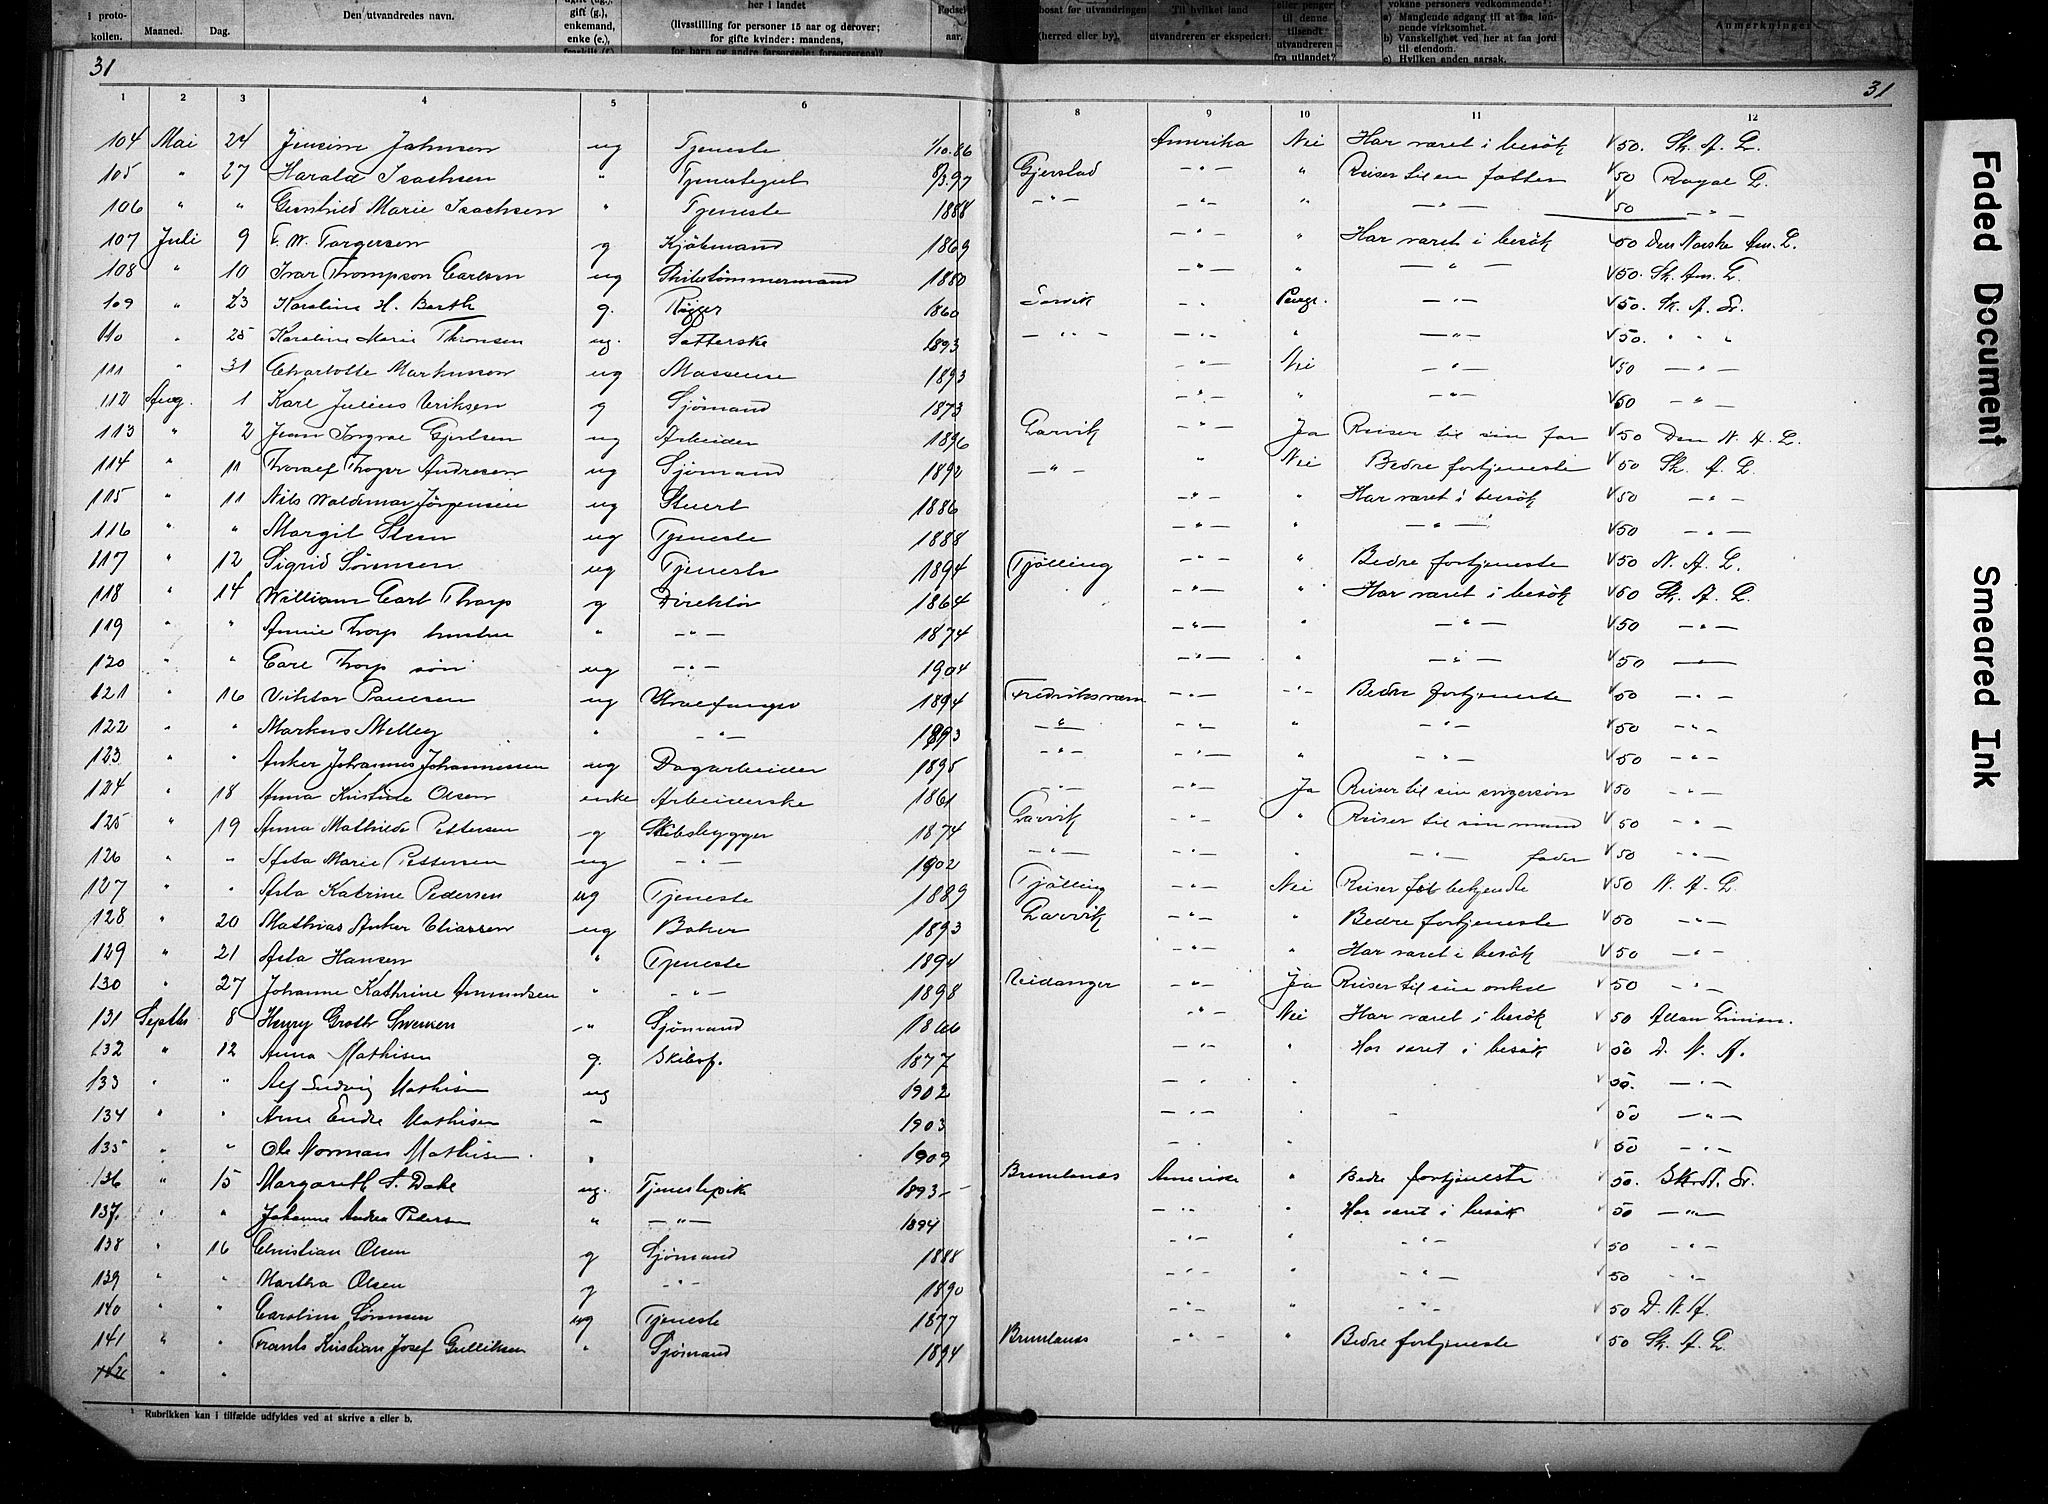 i proto-
kollen. Maaned. Dag. Den utvandredes navn.
gift (g.),
enkemand,
enke (e.),
her i landet
(livsstilling for personer 15 aar og derover;
for gifte kvinder: mandens,
Fødsels-
aar.
bosat før utvandringen
(herred eller by).
Til hvilket land
utvandreren er ekspedert.
eller penger
til denne
tilsendt
utvandreren
fra utlandet?
voksne personers vedkommende¹:
a) Manglende adgang til at faa løn-
nende virksomhet.
b) Vanskelighet ved her at faa jord
til eiendom.
c) Hvilken anden aarsak.
Anmerkninger
31 31
1 2 3 4 5 6 7 8 9 10 11 12
104 Mai 24 Jensine Johnsen ug Tjeneste 1/10.86 Amerika Nei Har været i besök 50. Sk. A. L.
105 " 27 Harald Isachsen " Tjenestegut 8/3.97 Gjerstad -"- " Reiser til en fætter 50 Royal L.
106 " " Marie Isachsen " Tjeneste 1888 -"- -"- " -"- 50 -"-
107 Juli 9 F. W. Torgersen g Kjöbmand 1869 -"- " Har været i besök 50 Den Norske Am. L.
108 " 10 Ivar Thompson Carlsen ug Skibstömmermand 1880 -"- " -"- 50. Sk. Am. L.
109 " 23 Karoline H. Barth g. Rigger 1860 Larvik -"- Penge. -"- 50. Sk. A. L.
110 " 25 Karoline Marie Thronsen ug. 1893 -"- -"- " -"- 50. " " "
111 " 31 Charlotte Markussen ug Masseuse 1893 -"- Nei -"- 50 -"-
112 Aug. 1 Karl Julius Eriksen g Sjömand 1873 -"- " -"- 50 -"-
113 " 2 Jean Ingval Gjertsen ug Arbeider 1896 Larvik -"- Ja Reiser til sin far 50 Den N. A. L.
114 " 11 Thoralf Thoger Andresen ug Sjömand 1892 -"- " Nei Bedre fortjeneste 50 Sk. A. L.
115 " 11 Nils Waldemar Jörgensen ug Stuert 1886 -"- " Har været i besök 50 -"-
116 " " Margit Steen ug Tjeneste 1888 -"- " -"- 50 -"-
117 " 12 Sigrid Sörensen ug Tjeneste 1894 Tjölling -"- " Bedre fortjeneste 50 N. A. L.
118 " 14 William Carl Thorp g Direktör 1864 -"- " Har været i besök 50 Sk. A. L.
119 " " Annie Thorp hustru " -"- 1874 -"- " -"- 50 -"-
120 " " Carl Thorp sön ug -"- 1904 -"- " -"- 50 -"-
121 " 16 Viktor Paulsen ug Hvalfanger 1894 Fredriksværn -"- -"- Bedre fortjeneste 50 -"-
122 " " Markus Melley " -"- 1893 -"- -"- " -"- 50 -"-
123 " " Anker Johannes Johannessen ug Dagarbeider 1895 -"- -"- " -"- 50 -"-
124 " 18 Anna Kristine Olsen enke Arbeiderske 1861 -"- -"- Ja Reiser til sin svigersön 50 -"-
125 " 19 Anna Mathilde Pettersen g Skibsbygger 1874 Larvik -"- " Reiser til sin mand 50 -"-
126 " " Asta Marie Pettersen ug -"- 1902 -"- -"- " -"- fader 50 -"-
127 " " Asta Katrine Pedersen ug Tjeneste 1889 Tjölling -"- Nei Reiser til bekjendte 50 N. A. L.
128 " 20 Mathias Anker Eliassen ug Baker 1893 Larvik -"- " Bedre fortjeneste 50 -"-
129 " 21 Asta Hansen " Tjeneste 1894 -"- " Har været i besök 50 -"-
130 " 27 Johanne Kathrine Amundsen " -"- 1898 Eidanger -"- Ja Reiser til sin onkel 50 -"-
131 Septbr 8 Henry Groth " Sjömand 1866 -"- Nei Har været i besök 50 Allan Linien.
132 " 12 Anna Mathisen g. Skibsf. 1877 -"- " Har været i besök 50 D. N. A.
133 " " Alf Ludvig Mathisen ug 1902 -"- " 50. -"-
134 " " Arne Endre Mathisen - 1903 -"- " - 50 -"-
135 " " Ole Norman Mathisen. " 1909 -"- " 50 -"-
136 " 15 Margareth S. Dahl ug. Tjenestepike 1893 - Brunlanes Amerika " Bedre fortjeneste 50. Sk. A. L.
137. " " Johanne Andrea Pedersen " -"- 1894 -"- " Har været i besök 50 -"-
138 " 16 Christian Olsen g Sjömand 1888 -"- " -"- 50 -"-
139 " " Martha Olsen g -"- 1890 -"- " -"- 50 -"-
140 " " Caroline Sörensen ug Tjeneste 1877 -"- " -"- 50 D. N. A.
141 " " Frants Kristian Josef Gulliksen " Sjömand 1894 Brunlanes -"- " Bedre fortjeneste 50 Sk. A. L.
142 " "
¹ Rubrikken kan i tilfælde udfyldes ved at skrive a eller b.
Faded Document
Smeared Ink